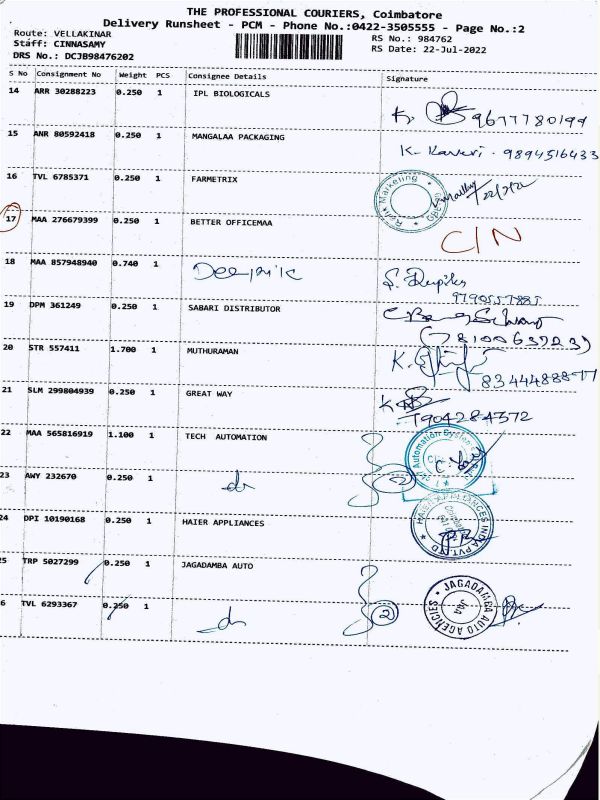 THE PROFESSIONAL COURIERS, Coimbatore
Delivery Runsheet - PCM - Phone No.:0422-3505555 - Page No.:2
Route: VELLAKINAR RS No.: 984762
Staff: CINNASAMY RS Date: 22-Jul-2022
DRS No.: DCJB98476202
S No Consignment No Weight PCS Consignee Details Signature
14 ARR 30288223 0.250 1 IPL BIOLOGICALS
K. 9677780199
15 ANR 80592418 0.250 1 MANGALAA PACKAGING K. Kaveri. 9894516433
16 TVL 6785371 0.250 1 FARMETRIX Marketing 22/7/22
17 MAA 276679399 0.250 1 BETTER OFFICEMAA C/N
18 MAA 857948940 0.740 1 Deepik S. Deepika
9790557885
19 DPM 361249 0.250 1 SABARI DISTRIBUTOR
(8100637232)
20 STR 557411 1.700 1 MUTHURAMAN K.
8344488877
21 SLM 299804939 0.250 1 GREAT WAY K
7904284372
22 MAA 565816919 1.100 1 TECH AUTOMATION Automation System
23 AWY 232670 0.250 1 do 2
24 DPI 10190168 0.250 1 HAIER APPLIANCES HAIER APPLIANCES INDIA PVT.LTD
5 TRP 5027299 0.250 1 JAGADAMBA AUTO
6 TVL 6293367 0.250 1 do 2 JAGADAMBA AUTO AGENCIES